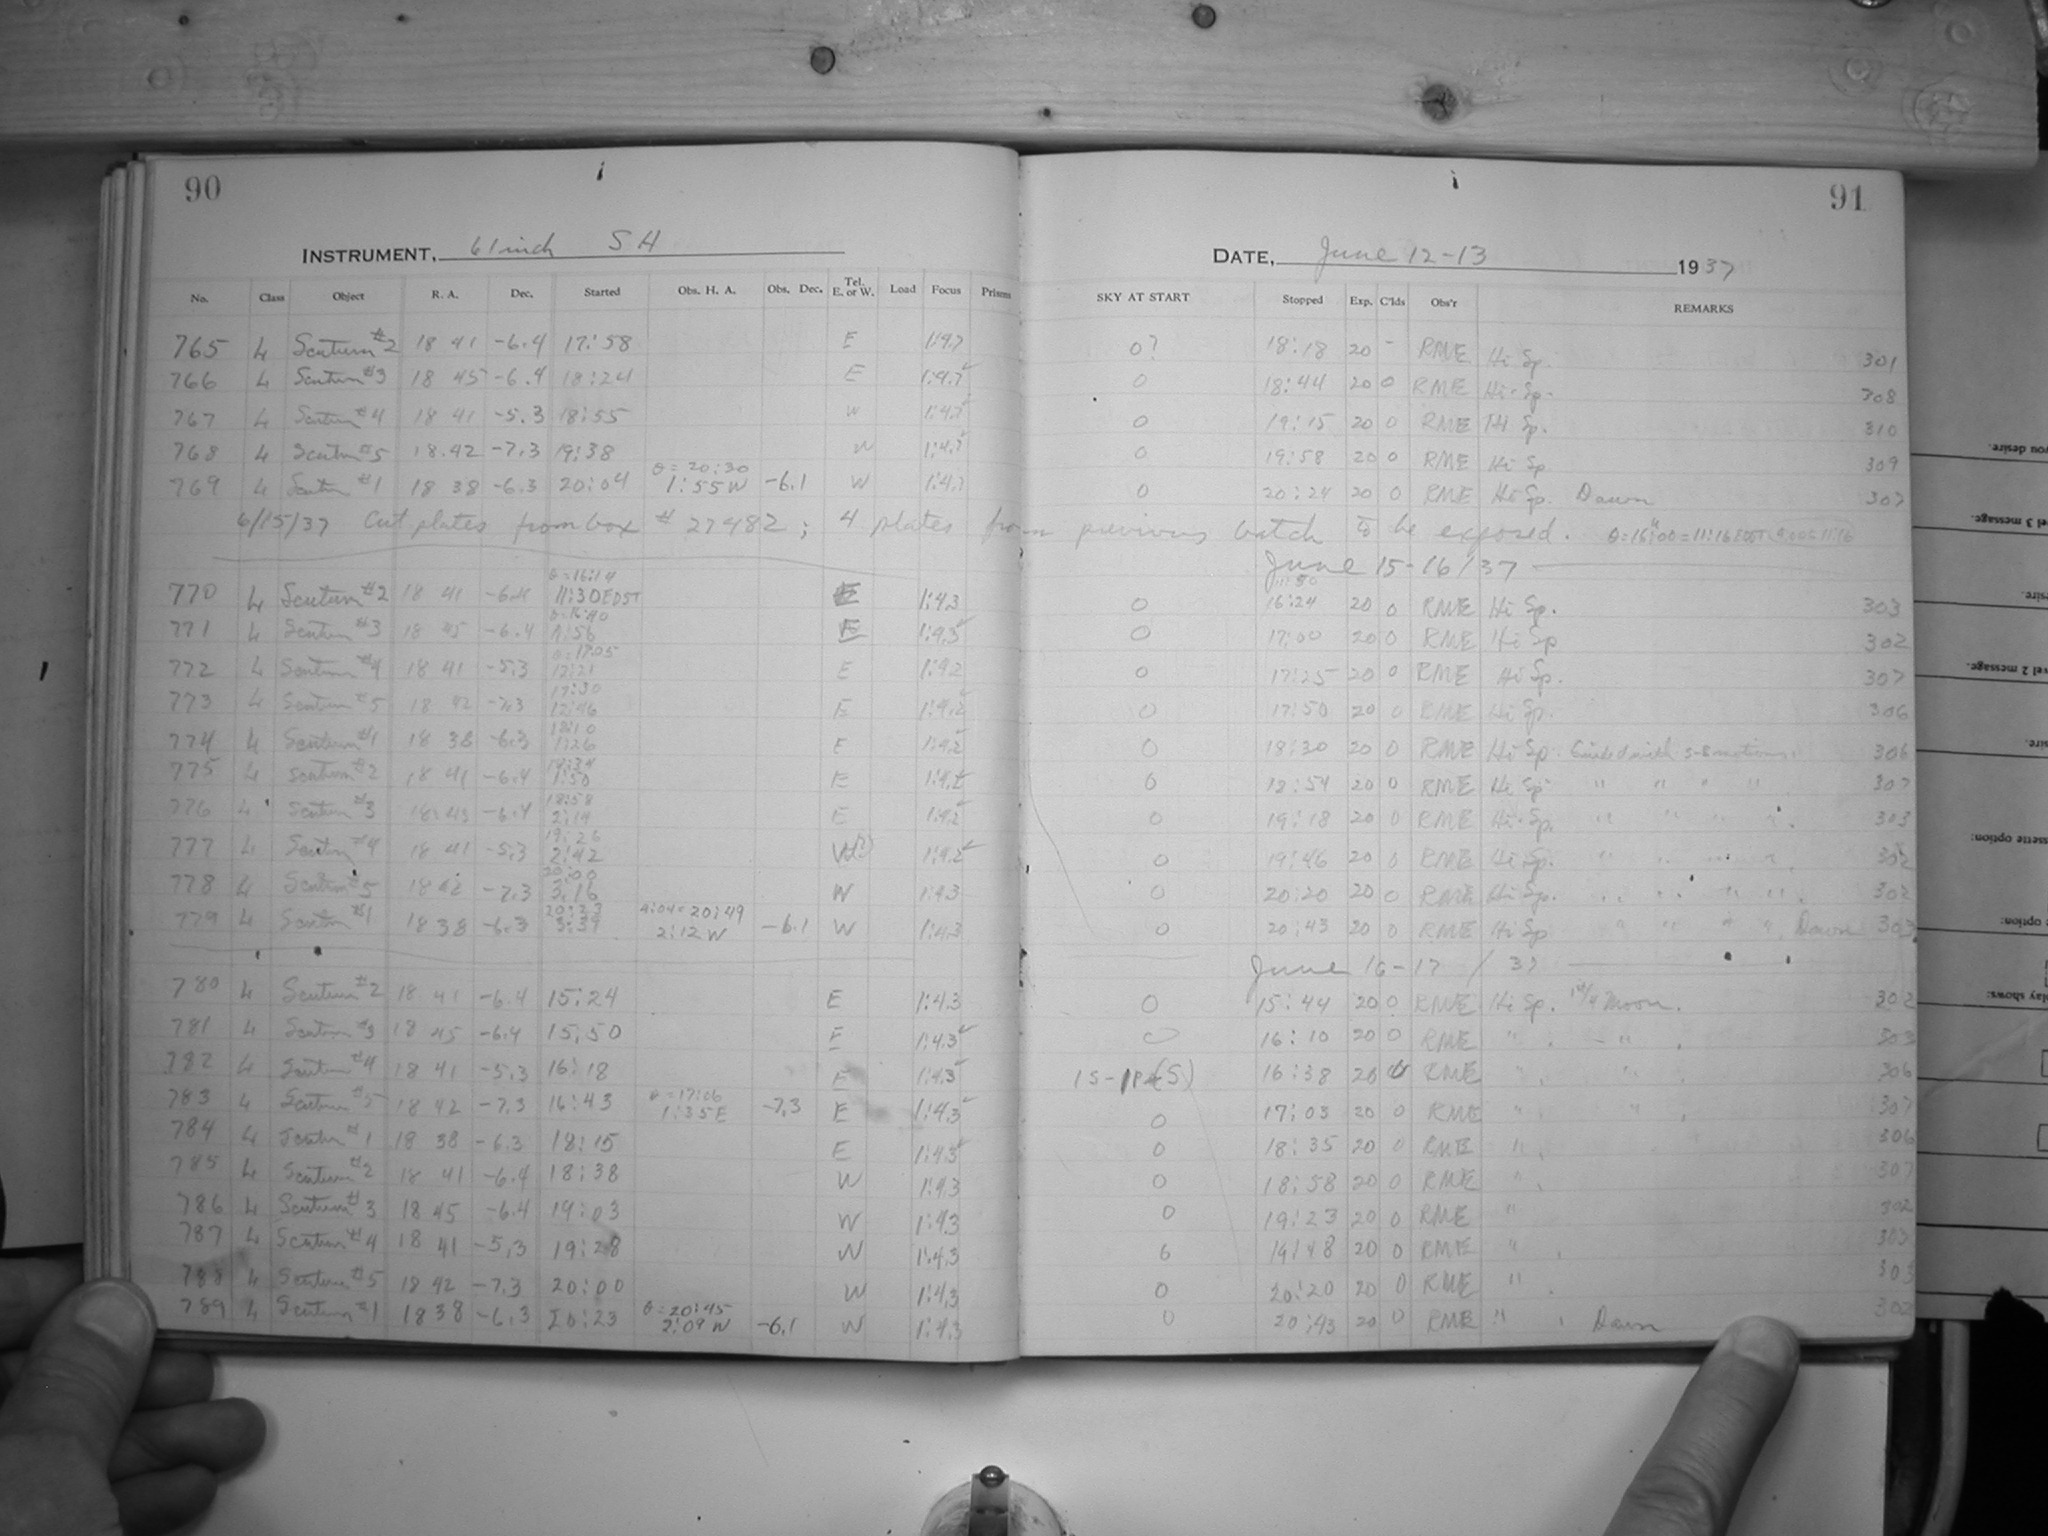 90
91
INSTRUMENT, 61 inch SH
DATE, June 12-13 1937
No. Class Object R. A. Dec. Started Obs. H. A. Obs. Dec. Tel. E. or W. Load Focus Prisms SKY AT START Stopped Exp. C'lds Obs'r REMARKS
765 4 Scutum #2 18 41 -6.4 17:58 E 0? 18:18 20 - RME Hi Sp. 301
766 4 Scutum #3 18 45 -6.4 18:24 E 0 18:44 20 0 RME Hi Sp. 308
767 4 Scutum #4 18 41 -5.3 18:55 W 0 19:15 20 0 RME Hi Sp. 310
768 4 Scutum #5 18.42 -7.3 19:38 W 0 19:58 20 0 RME Hi Sp 309
θ = 20:30
769 4 Scutum #1 18 38 -6.3 20:04 1:55 W -6.1 W 0 20:24 20 0 RME Hi Sp. Dawn 307
6/15/37 Cut plates from box # 27482; 4 plates from previous batch to be exposed.
June 15-16/37
θ = 16:14 11:50
770 4 Scutum #2 18 41 -6.4 11:30 EDST E 1:4.3 0 16:24 20 0 RME Hi Sp. 303
θ = 16:40
771 4 Scutum #3 18 45 -6.4 11:56 E 1:4.3 0 17:00 20 0 RME Hi Sp 302
θ = 17:05
772 4 Scutum #4 18 41 -5.3 12:21 E 1:4.2 0 17:25 20 0 RME Hi Sp. 307
17:30
773 4 Scutum #5 18 42 -7.3 12:46 E 1:4.2 0 17:50 20 0 RME Hi Sp. 306
18:10
774 4 Scutum #1 18 38 -6.3 1:26 E 1:4.2 0 18:30 20 0 RME Hi Sp. Guided with motions. 306
775 4 Scutum #2 18 41 -6.4 1:50 E 1:4.2 0 18:54 20 0 RME Hi Sp " " " " 307
18:58
776 4 Scutum #3 18:45 -6.4 2:14 E 1:4.2 0 19:18 20 0 RME Hi Sp. " " " " 303
19:26
777 4 Scutum #4 18 41 -5.3 2:42 W(?) 1:4.2 0 19:46 20 0 RME Hi Sp. " " " " 302
20:00
778 4 Scutum #5 18 42 -7.3 3:16 W 1:4.3 0 20:20 20 0 RME Hi Sp. " " " " 302
20:23 4:04 = 20:49
779 4 Scutum #1 18 38 -6.3 3:39 2:12 W -6.1 W 1:4.3 0 20:43 20 0 RME Hi Sp " " " " Dawn 303
June 16-17 / 37
780 4 Scutum #2 18 41 -6.4 15:24 E 1:4.3 0 15:44 20 0 RME Hi Sp. Moon. 302
781 4 Scutum #3 18 45 -6.4 15:50 E 1:4.3 0 16:10 20 0 RME " " 303
782 4 Scutum #4 18 41 -5.3 16:18 E 1:4.3 16:38 20 RME " " 306
θ = 17:06
783 4 Scutum #5 18 42 -7.3 16:43 1:35 E -7.3 E 1:4.3 0 17:03 20 0 RME " " 307
784 4 Scutum #1 18 38 -6.3 18:15 E 1:4.3 0 18:35 20 0 RME " 306
785 4 Scutum #2 18 41 -6.4 18:38 W 1:4.3 0 18:58 20 0 RME " 307
786 4 Scutum #3 18 45 -6.4 19:03 W 1:4.3 0 19:23 20 0 RME " 302
787 4 Scutum #4 18 41 -5.3 19:28 W 1:4.3 0 19:48 20 0 RME " 303
788 4 Scutum #5 18 42 -7.3 20:00 W 1:4.3 0 20:20 20 0 RME " 303
θ = 20:45
789 4 Scutum #1 18 38 -6.3 20:23 2:09 W -6.1 W 1:4.3 0 20:43 20 0 RME " Dawn 302
you desire.
el 3 message.
sire.
vel 2 message.
sire.
ssette option:
e option:
play shows: